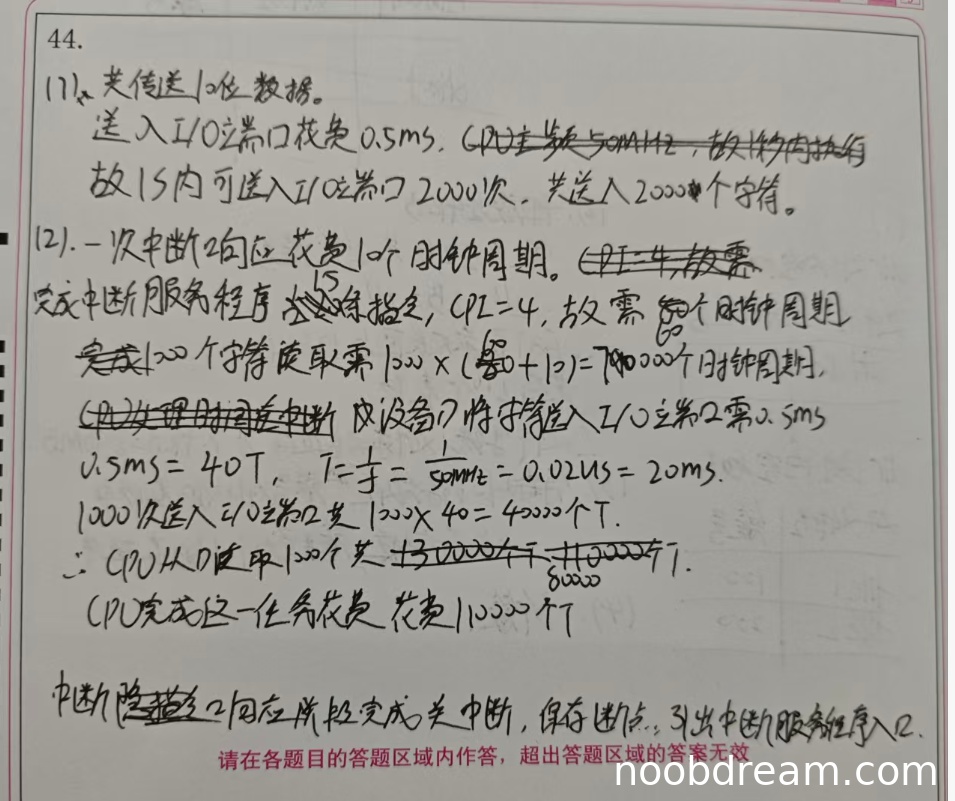 44.
(1). 共传送10位数据。
送入I/O端口花费0.5ms, CPU主频50MHz, 故1秒内执行
故1S内可送入I/O端口2000次, 共送入2000个字符。
(2). 一次中断响应花费10个时钟周期。CPI=4, 故需
完成中断服务程序 15条指令, CPI=4, 故需 60个时钟周期
完成1000个字符读取需1000×(60+10)=70000个时钟周期,
CPU处理时间 中断 从设备D将字符送入I/O端口需0.5ms
0.5ms=40T, T=1/f=1/50MHz=0.02us=20ms.
1000次送入I/O端口共1000×40=40000个T.
∴CPU从D读取1000个共 130000个T 110000个T.
80000
CPU完成这一任务花费 花费110000个T
中断隐指令响应阶段完成关中断, 保存断点, 引出中断服务程序入口.
请在各题目的答题区域内作答，超出答题区域的答案无效
noobdream.com